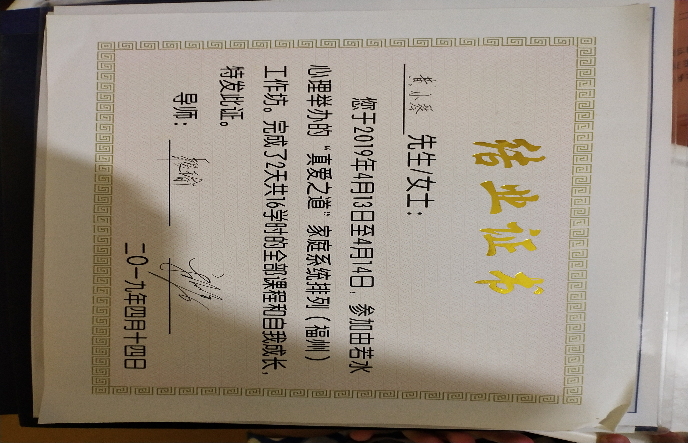 结业证书
先生/女士：
您于2019年4月13日至4月14日，参加由若水
心理举办的“真爱之道”家庭系统排列（福州）
工作坊。完成了2天共16学时的全部课程和自我成长
特发此证。
导师：
二〇一九年四月十四日